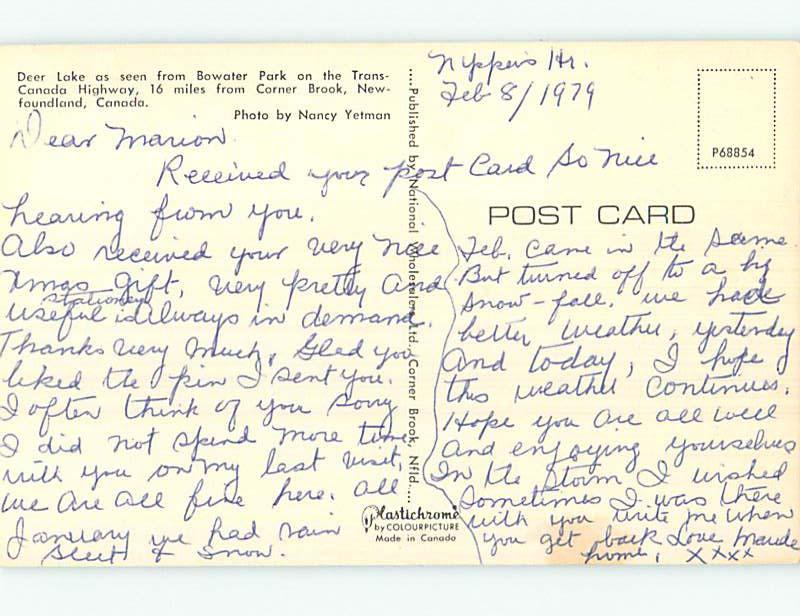 Deer Lake as seen from Bowater Park on the Trans-
Canada Highway, 16 miles from Corner Brook, New-
foundland, Canada.
Photo by Nancy Yetman
Dear Marion.
Received your post Card So Nice
hearing from you.
Also received your very nice
Xmas Gift, very pretty and
Stationery
useful is always in demand.
Thanks very much, Glad you
liked the pin I sent you.
I often think of you Sorry
I did not spend more time
with you on my last visit,
we are all fine here. all
January we had rain
Sleet & Snow.
....Published by National Wholesalers Ltd., Corner Brook, Nfld....
Plastichrome
by COLOURPICTURE
Made in Canada
Nippers Hr.
Feb 8/1979
P68854
POST CARD
Feb. Came in the same
But turned off to a big
Snow-fall. we had
better weather, yesterday
And today, I hope
this weather continues.
Hope you are all well
And enjoying yourselves
In the storm I wished
Sometimes I was there
with you write me when
you get back Love Maude
home. xxxx